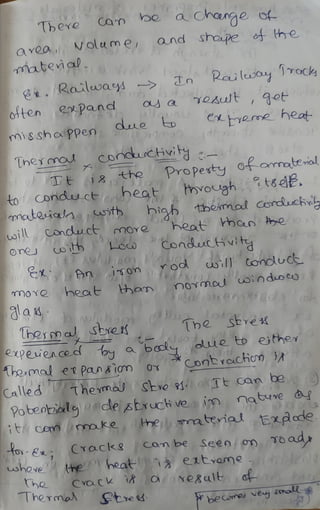 There can be a change of
area, volume, and shape of the
material.
Ex. Railways → In Railway Tracks
often expand as a result, get
misshappen due to extreme heat
Thermal conductivity :-
It is the Property of a material
to conduct heat through itself.
materials with high thermal conductivity
will conduct more heat than the
ones with Low conductivity
Ex: An iron rod will conduct
more heat than normal window
glass.
Thermal stress :- The stress
experienced by a body due to either
thermal expansion or *contraction is
called Thermal stress. It can be
Potentially destructive in nature as
it can make the material Explode
for Ex; Cracks can be seen on roads
where the heat is extreme.
The crack is a result of
Thermal Stress.
* becomes very small